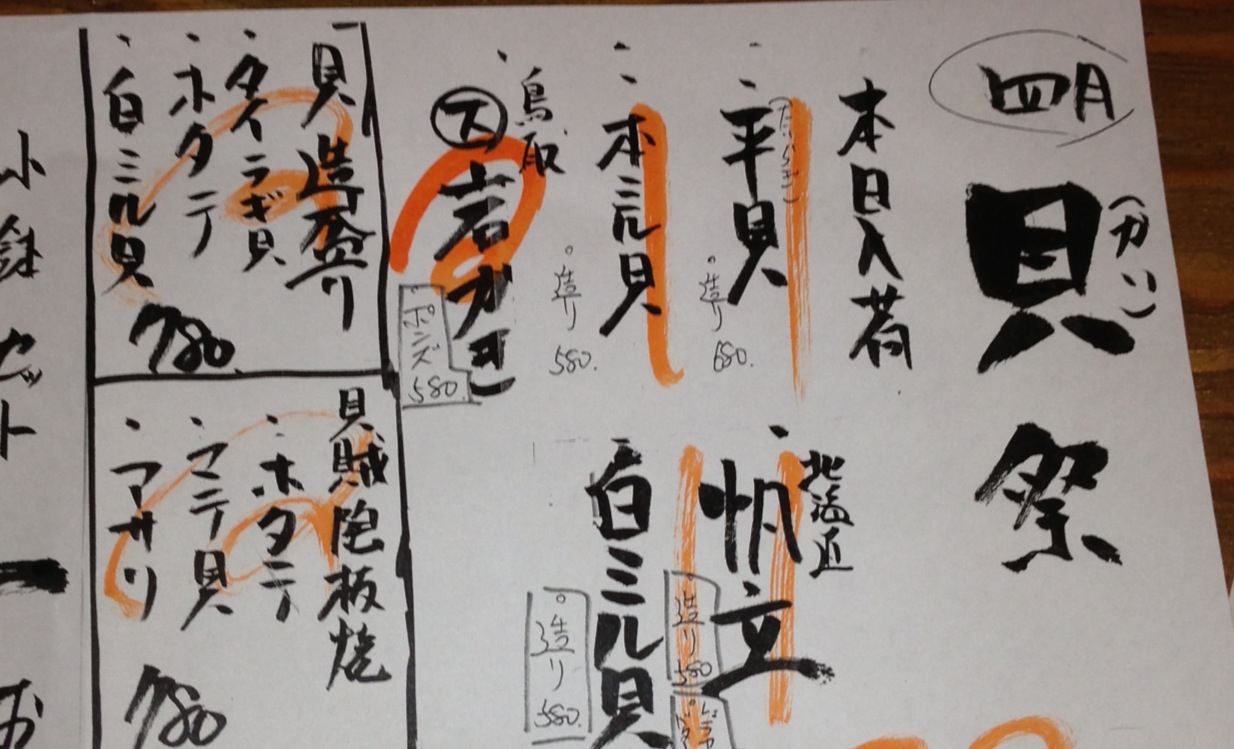 四月
貝祭
(かい)
本日入荷
・平貝
(たいらぎ)
。造り 680.
・本ミル貝
。造り 580.
鳥取
・大 岩がき
ポンズ 580.
北海道
・帆立
造り 580
・白ミル貝
。造り 580.
貝造盛り
・タイラギ貝
・ホタテ
・白ミル貝
780.
貝陶板焼
・ホタテ
・マテ貝
・アサリ
780
セット